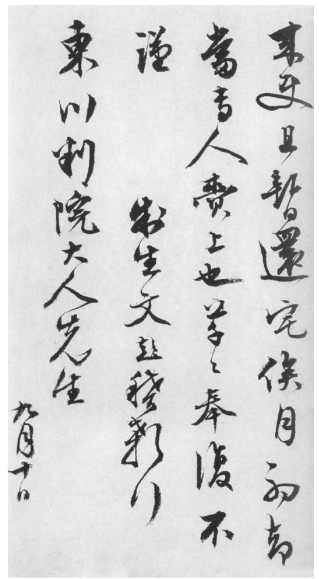 来使且暫還宅俟月初即
當專人賫上也草々奉復不
謹
制生文彭稽顙
東川判院大人先生
九月十日